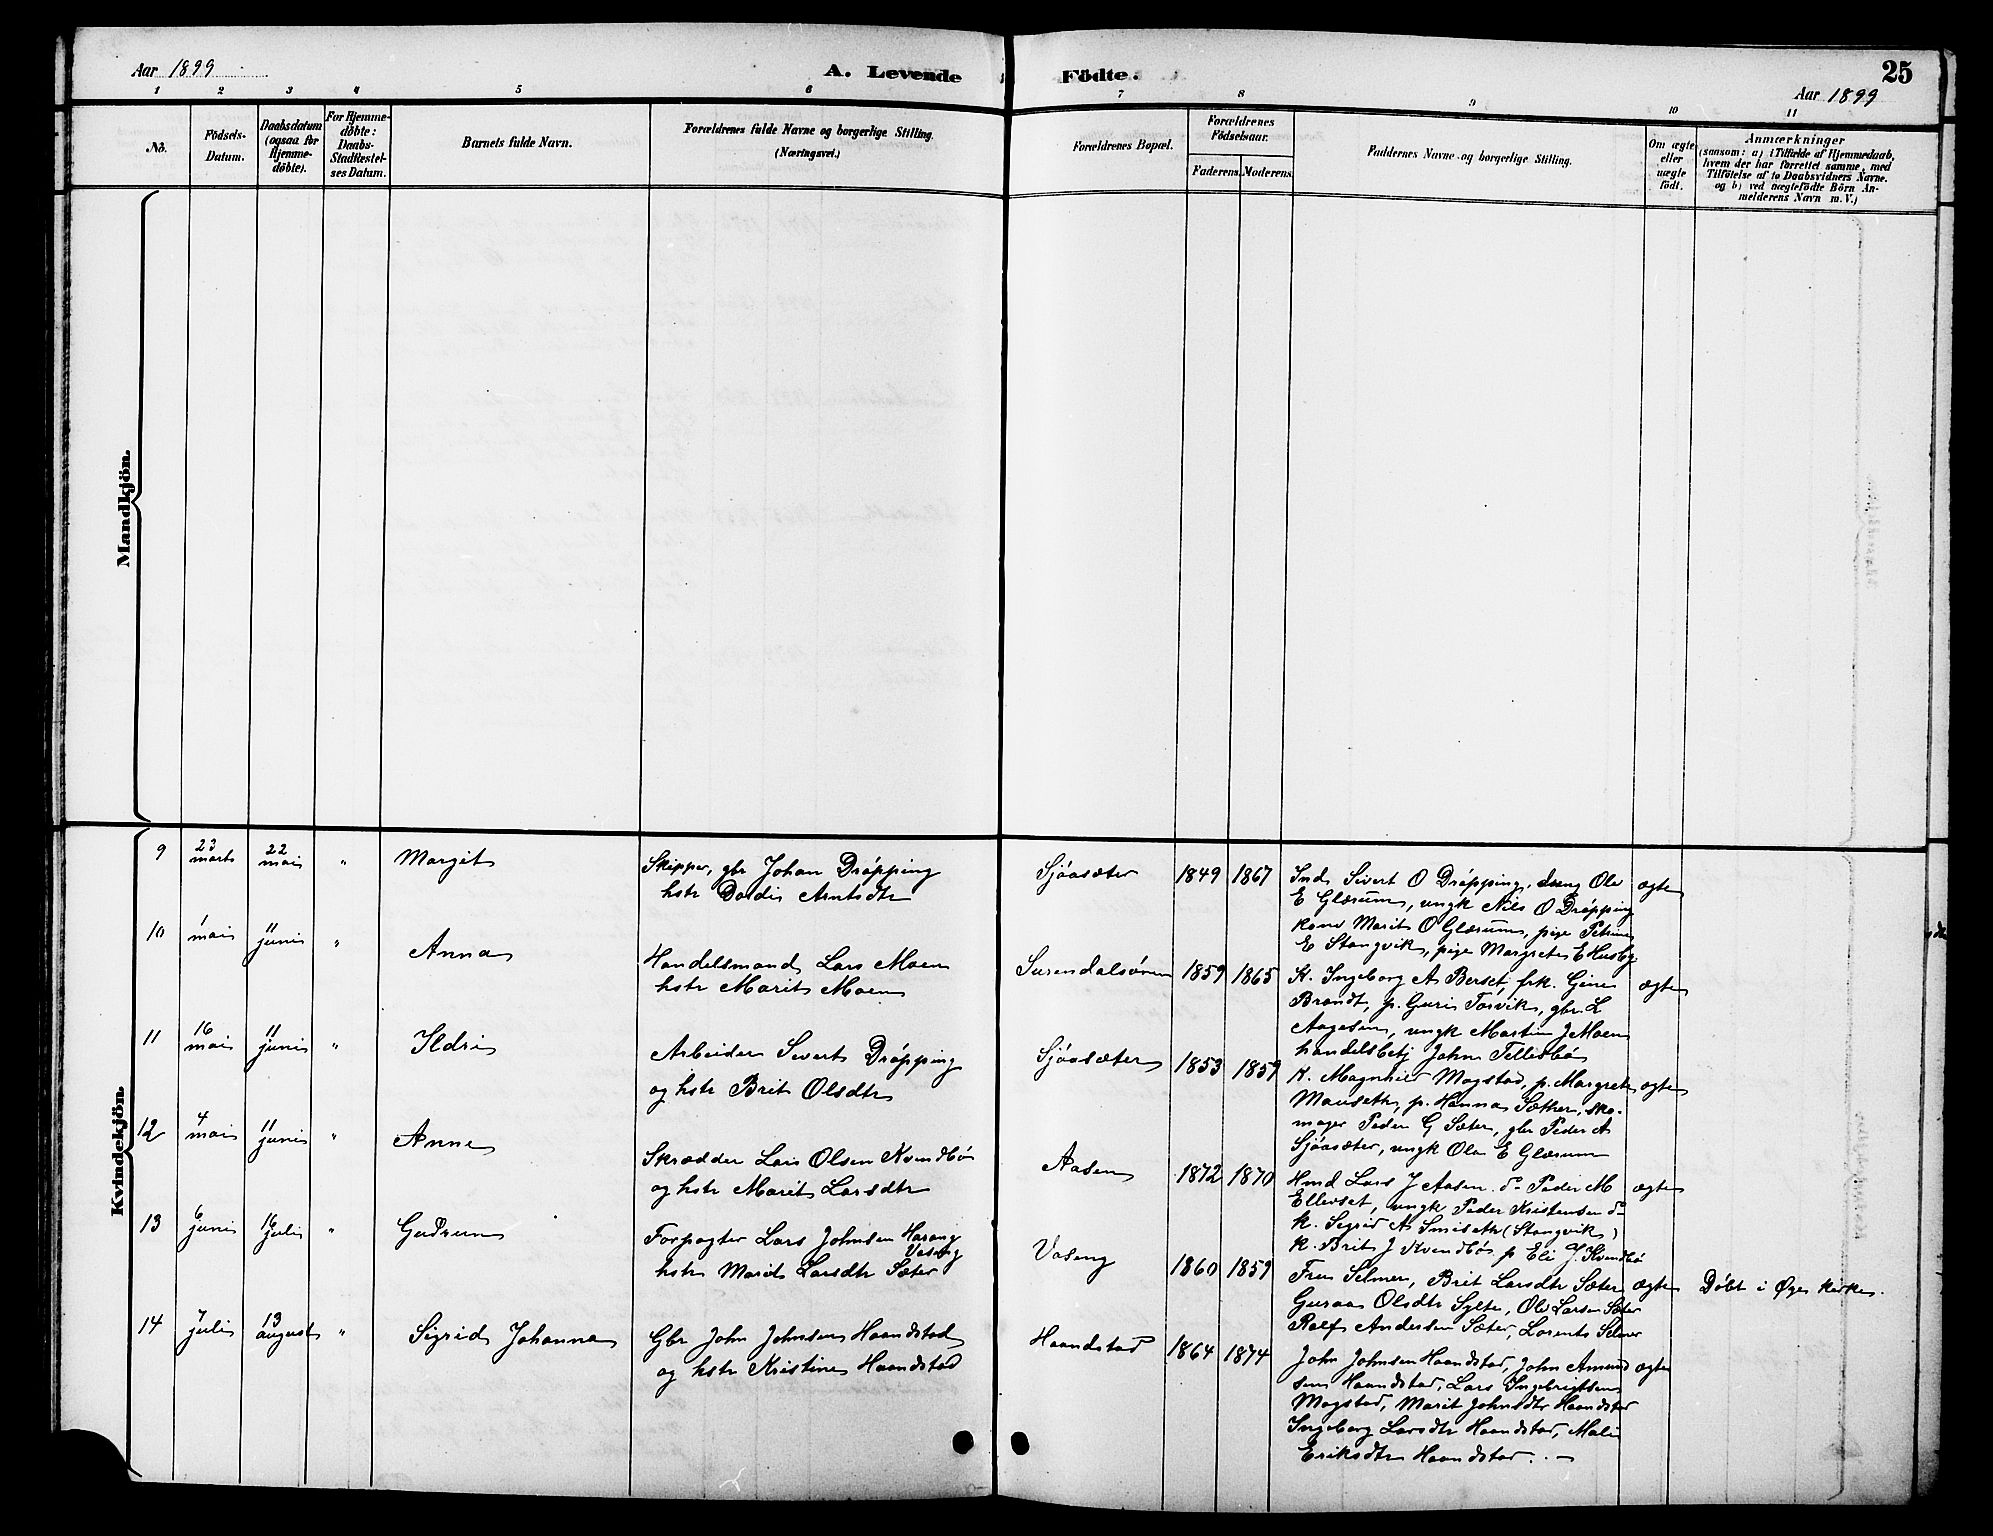 Aar 1899
A. Levende Födte.
25
Aar 1899
1 2 3 4 5 6 7 8 9 10 11
No.
Födsels-
Datum.
Daabsdatum
(ogsaa for
Hjemme-
døbte).
For Hjemme-
døbte:
Daabs-
Stadfæstel-
ses Datum.
Barnets fulde Navn.
Forældrenes fulde Navne og borgerlige Stilling.
(Næringsvei.)
Forældrenes Bopæl.
Forældrenes
Födselsaar.
Faderens. Moderens.
Faddernes Navne og borgerlige Stilling.
Om ægte
eller
uægte
født.
Anmærkninger
(saasom: a) i Tilfælde af Hjemmedaab,
hvem der har forrettet samme, med
Tilföielse af to Daabsvidners Navne.
og b) ved uægtefödte Börn An-
melderens Navn m. V.)
Mandkjön.
Kvindekjön.
9
23
marts
22
mai
"
Margit
Skipper, gbr Johan Drøpping
hstr Dordi Arntsdtr
Sjøasæter
1849 1867
Ind. Sivert O Drøpping, Ole
E Glærum, ungk Nils O Drøpping
kone Marit O Glærum, pige Petrine
E Stangvik, pige Margrete E Husby
ægte
10
mai
11
juni
"
Anna
Handelsmand Lars Moen
hstr Marit Moen
Surendalsøren
1859 1865
K. Ingeborg A Berset, frk. Gine
Brandt, p. Guri Torvik, gbr. L
Aagesen, ungk Martin J Moen
handelsbetj John Tellesbø
ægte
11
16
mai
11
juni
"
Ildri
Arbeider Sivert Drøpping
og hstr Brit Olsdtr
Sjøasæter
1853 1859
K. Magnhild Mogstad, p. Margrete
Mauseth, p. Hanna Sæther, sko-
mager Peder G Sæter, gbr Peder A
Sjøasæter, ungk Ola E Glærum
ægte
12
4
mai
11
juni
"
Anne
Skrædder Lars Olsen Kvendbø
og hstr Marit Larsdtr
Aasen
1872 1870
Hmd Lars J Aasen do Peder M
Ellevset, ungk Peder Kristensen do
k. Sigrid A Smiseth (Stangvik)
k. Brit J Kvendbø p Eli J Kvendbø
ægte
13
6
juni
16
juli
"
Gudrun
Forpagter Lars Johnsen Harang
Vaseng
hstr Marit Larsdtr Sæter
Vaseng
1860 1859
Fru Selmer, Brit Larsdtr Sæter
Guraa Olsdtr Sylte, Ole Larsen Sæter
Rolf Andersen Sæter, Lorents Selmer
ægte
Døbt i Øye kirke.
14
7
juli
13
august
"
Sigrid Johanna
Gbr John Johnsen Haandstad
og hstr Kristine Haandstad
Haandstad
1864 1874
John Johnsen Haandstad, John Amund
sen Haandstad, Lars Ingebrigtsen
Mogstad, Marit Johnsdtr Haandstad
Ingeborg Larsdtr Haandstad, Mali
Eriksdtr Haandstad. —
ægte